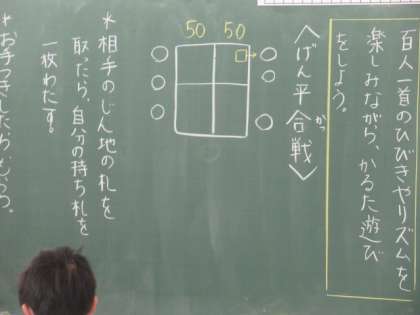 百人一首のひびきやリズムを
楽しみながら、かるた遊び
をしよう。
〈げん平合戦〉
かっ
50 50
＊相手のじん地の札を
取ったら、自分の持ち札を
一枚わたす。
＊お手つきしたら、もらう。